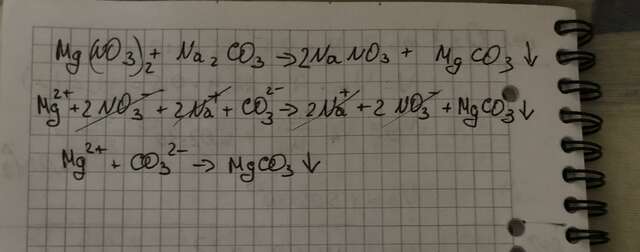 Mg(NO₃)₂ + Na₂CO₃ → 2NaNO₃ + MgCO₃↓
Mg²⁺ + 2NO₃⁻ + 2Na⁺ + CO₃²⁻ → 2Na⁺ + 2NO₃⁻ + MgCO₃↓
Mg²⁺ + CO₃²⁻ → MgCO₃↓